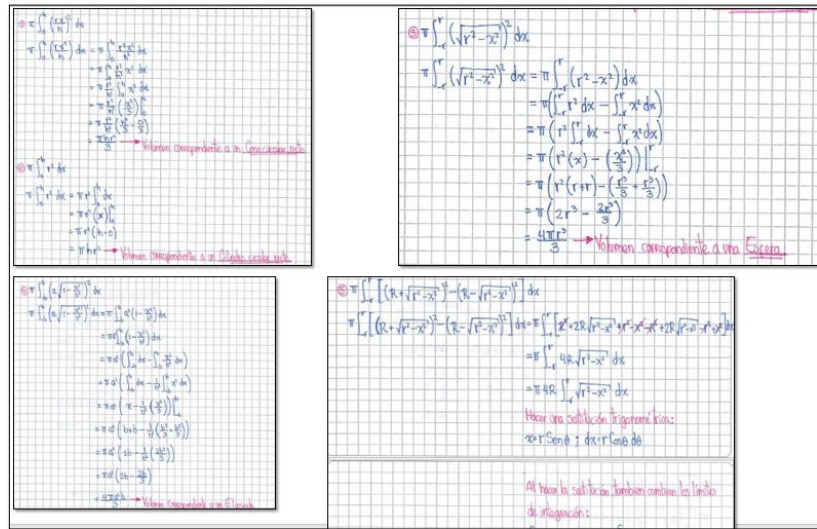 ① π∫₀ʰ (rx/h)² dx
π∫₀ʰ (rx/h)² dx = π∫₀ʰ r²x²/h² dx
= π∫₀ʰ r²/h² x² dx
= π r²/h² ∫₀ʰ x² dx
= π r²/h² (x³/3)|₀ʰ
= π r²/h² (h³/3 - 0/3)
= πhr²/3 → Volumen correspondiente a un Cono circular recto
② π∫₀ʰ r² dx
π∫₀ʰ r² dx = πr² ∫₀ʰ dx
= πr² (x)|₀ʰ
= πr² (h-0)
= πhr² → Volumen correspondiente a un Cilindro circular recto
③ π∫₋ᵣʳ (√(r²-x²))² dx
π∫₋ᵣʳ (√(r²-x²))² dx = π∫₋ᵣʳ (r²-x²) dx
= π(∫₋ᵣʳ r² dx - ∫₋ᵣʳ x² dx)
= π(r² ∫₋ᵣʳ dx - ∫₋ᵣʳ x² dx)
= π(r²(x) - (x³/3))|₋ᵣʳ
= π(r²(r+r) - (r³/3 + r³/3))
= π(2r³ - 2r³/3)
= 4πr³/3 → Volumen correspondiente a una Esfera
④ π∫₋bᵇ (a√(1-x²/b²))² dx
π∫₋bᵇ (a√(1-x²/b²))² dx = π∫₋bᵇ a²(1-x²/b²) dx
= πa² ∫₋bᵇ (1-x²/b²) dx
= πa² (∫₋bᵇ dx - ∫₋bᵇ x²/b² dx)
= πa² (∫₋bᵇ dx - 1/b² ∫₋bᵇ x² dx)
= πa² (x - 1/b² (x³/3))|₋bᵇ
= πa² (b+b - 1/b² (b³/3 + b³/3))
= πa² (2b - 1/b² (2b³/3))
= πa² (2b - 2b/3)
= 4πa²b/3 → Volumen correspondiente a un Elipsoide
⑤ π∫₋ᵣʳ [(R+√(r²-x²))² - (R-√(r²-x²))²] dx
π∫₋ᵣʳ [(R+√(r²-x²))² - (R-√(r²-x²))²] dx = π∫₋ᵣʳ [R²+2R√(r²-x²)+r²-x²-R²+2R√(r²-x²)-r²+x²] dx
= π∫₋ᵣʳ 4R√(r²-x²) dx
= π4R ∫₋ᵣʳ √(r²-x²) dx
Hacer una sustitución trigonométrica:
x=r Senθ ; dx=r Cosθ dθ
Al hacer la sustitución, tambien cambian los limites
de integración: